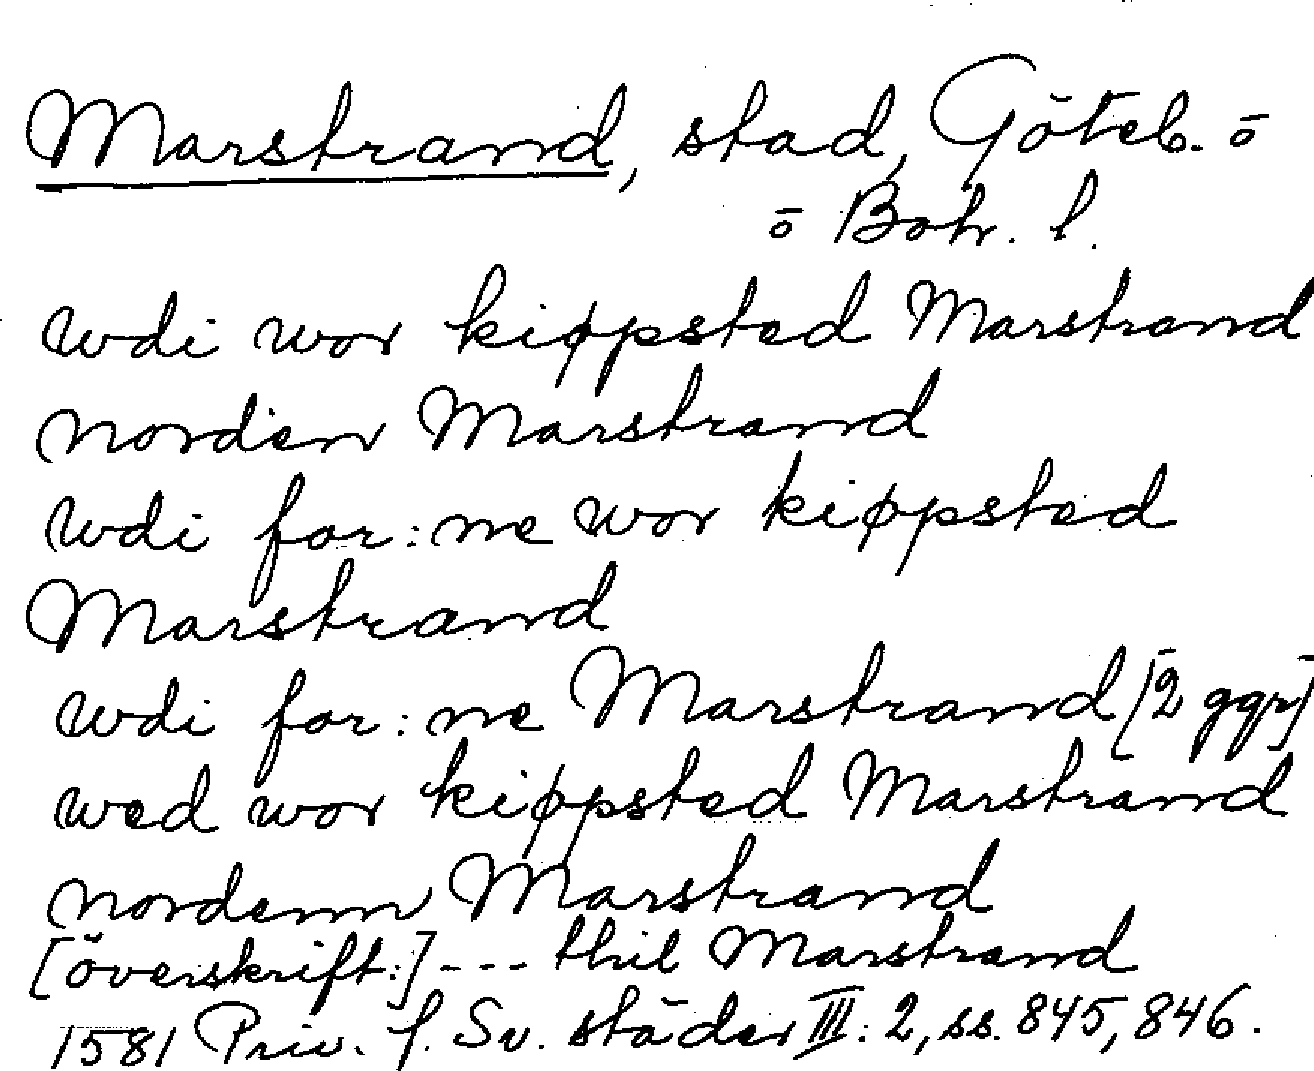 Marstrand, stad, Göteb. o
o Boh. l.
wdi wor kippsted Marstrand
norden Marstrand
wdi for:ne wor kippsted
Marstrand
wdi for:ne Marstrand [2 ggr]
wed wor kippsted Marstrand
nordenn Marstrand
[överskrift:] --- thil Marstrand
1581 Priv. f. Sv. städer III: 2, ss. 845, 846.